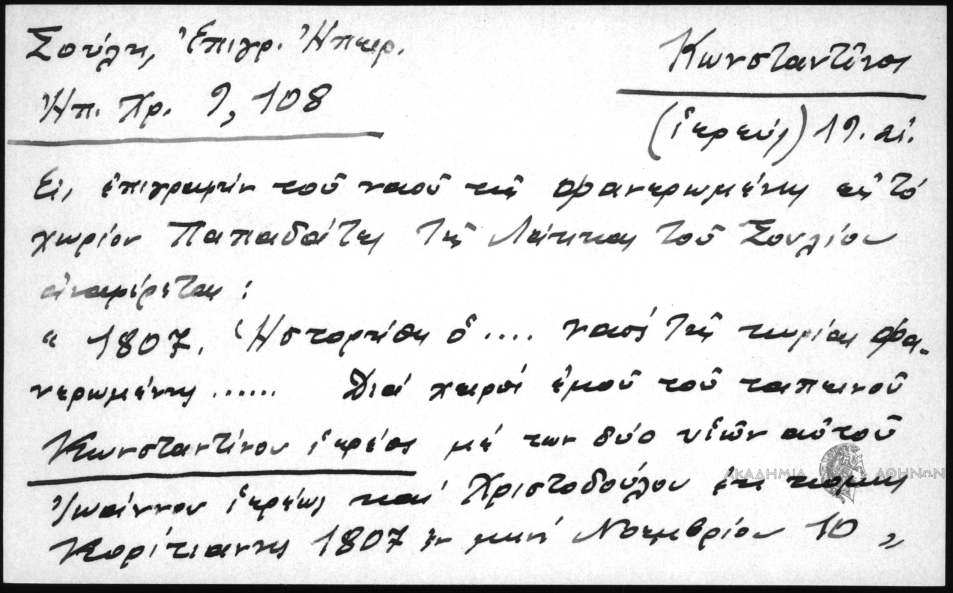 Σούλη, Ἐπιγρ. Ἠπειρ.
Ἠπ. Χρ. 9, 108
Κωνσταντῖνος
(ἱερεύς) 19. αἰ.
Εἰς ἐπιγραφὴν τοῦ ναοῦ τῆς Φανερωμένης εἰς τὸ
χωρίον Παπαδάτες τῆς Λάκκας τοῦ Σουλίου
ἀναφέρεται:
" 1807. Ἡστορήθη ὁ .... ναὸς τῆς κυρίας Φα-
νερωμένης ...... Διὰ χειρὸς ἐμοῦ τοῦ ταπεινοῦ
Κωνσταντίνου ἱερέος μὲ των δύο υἱῶν αὐτοῦ
Ἰωάννου ἱερέως καὶ Χριστοδούλου ἐκ κώμης
Κορίτιανης 1807 ἐν μηνὶ Νοεμβρίου 10 "
ΑΚΑΔΗΜΙΑ ΑΘΗΝΩΝ